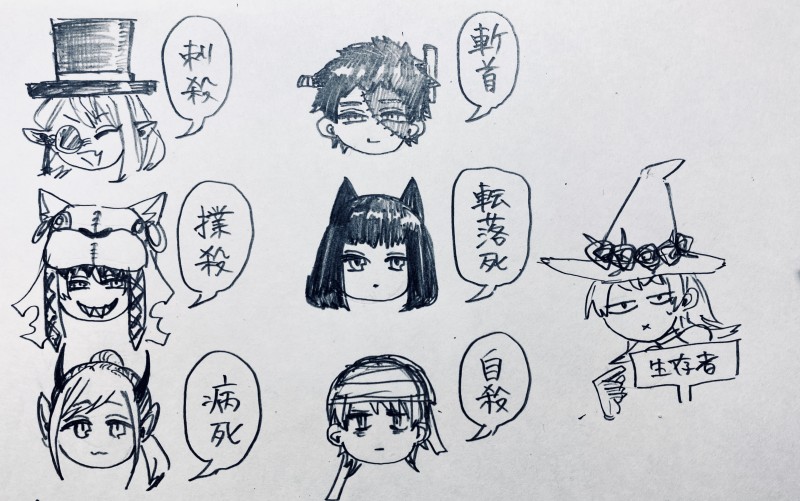 刺殺
斬首
撲殺
転落死
病死
自殺
生存者